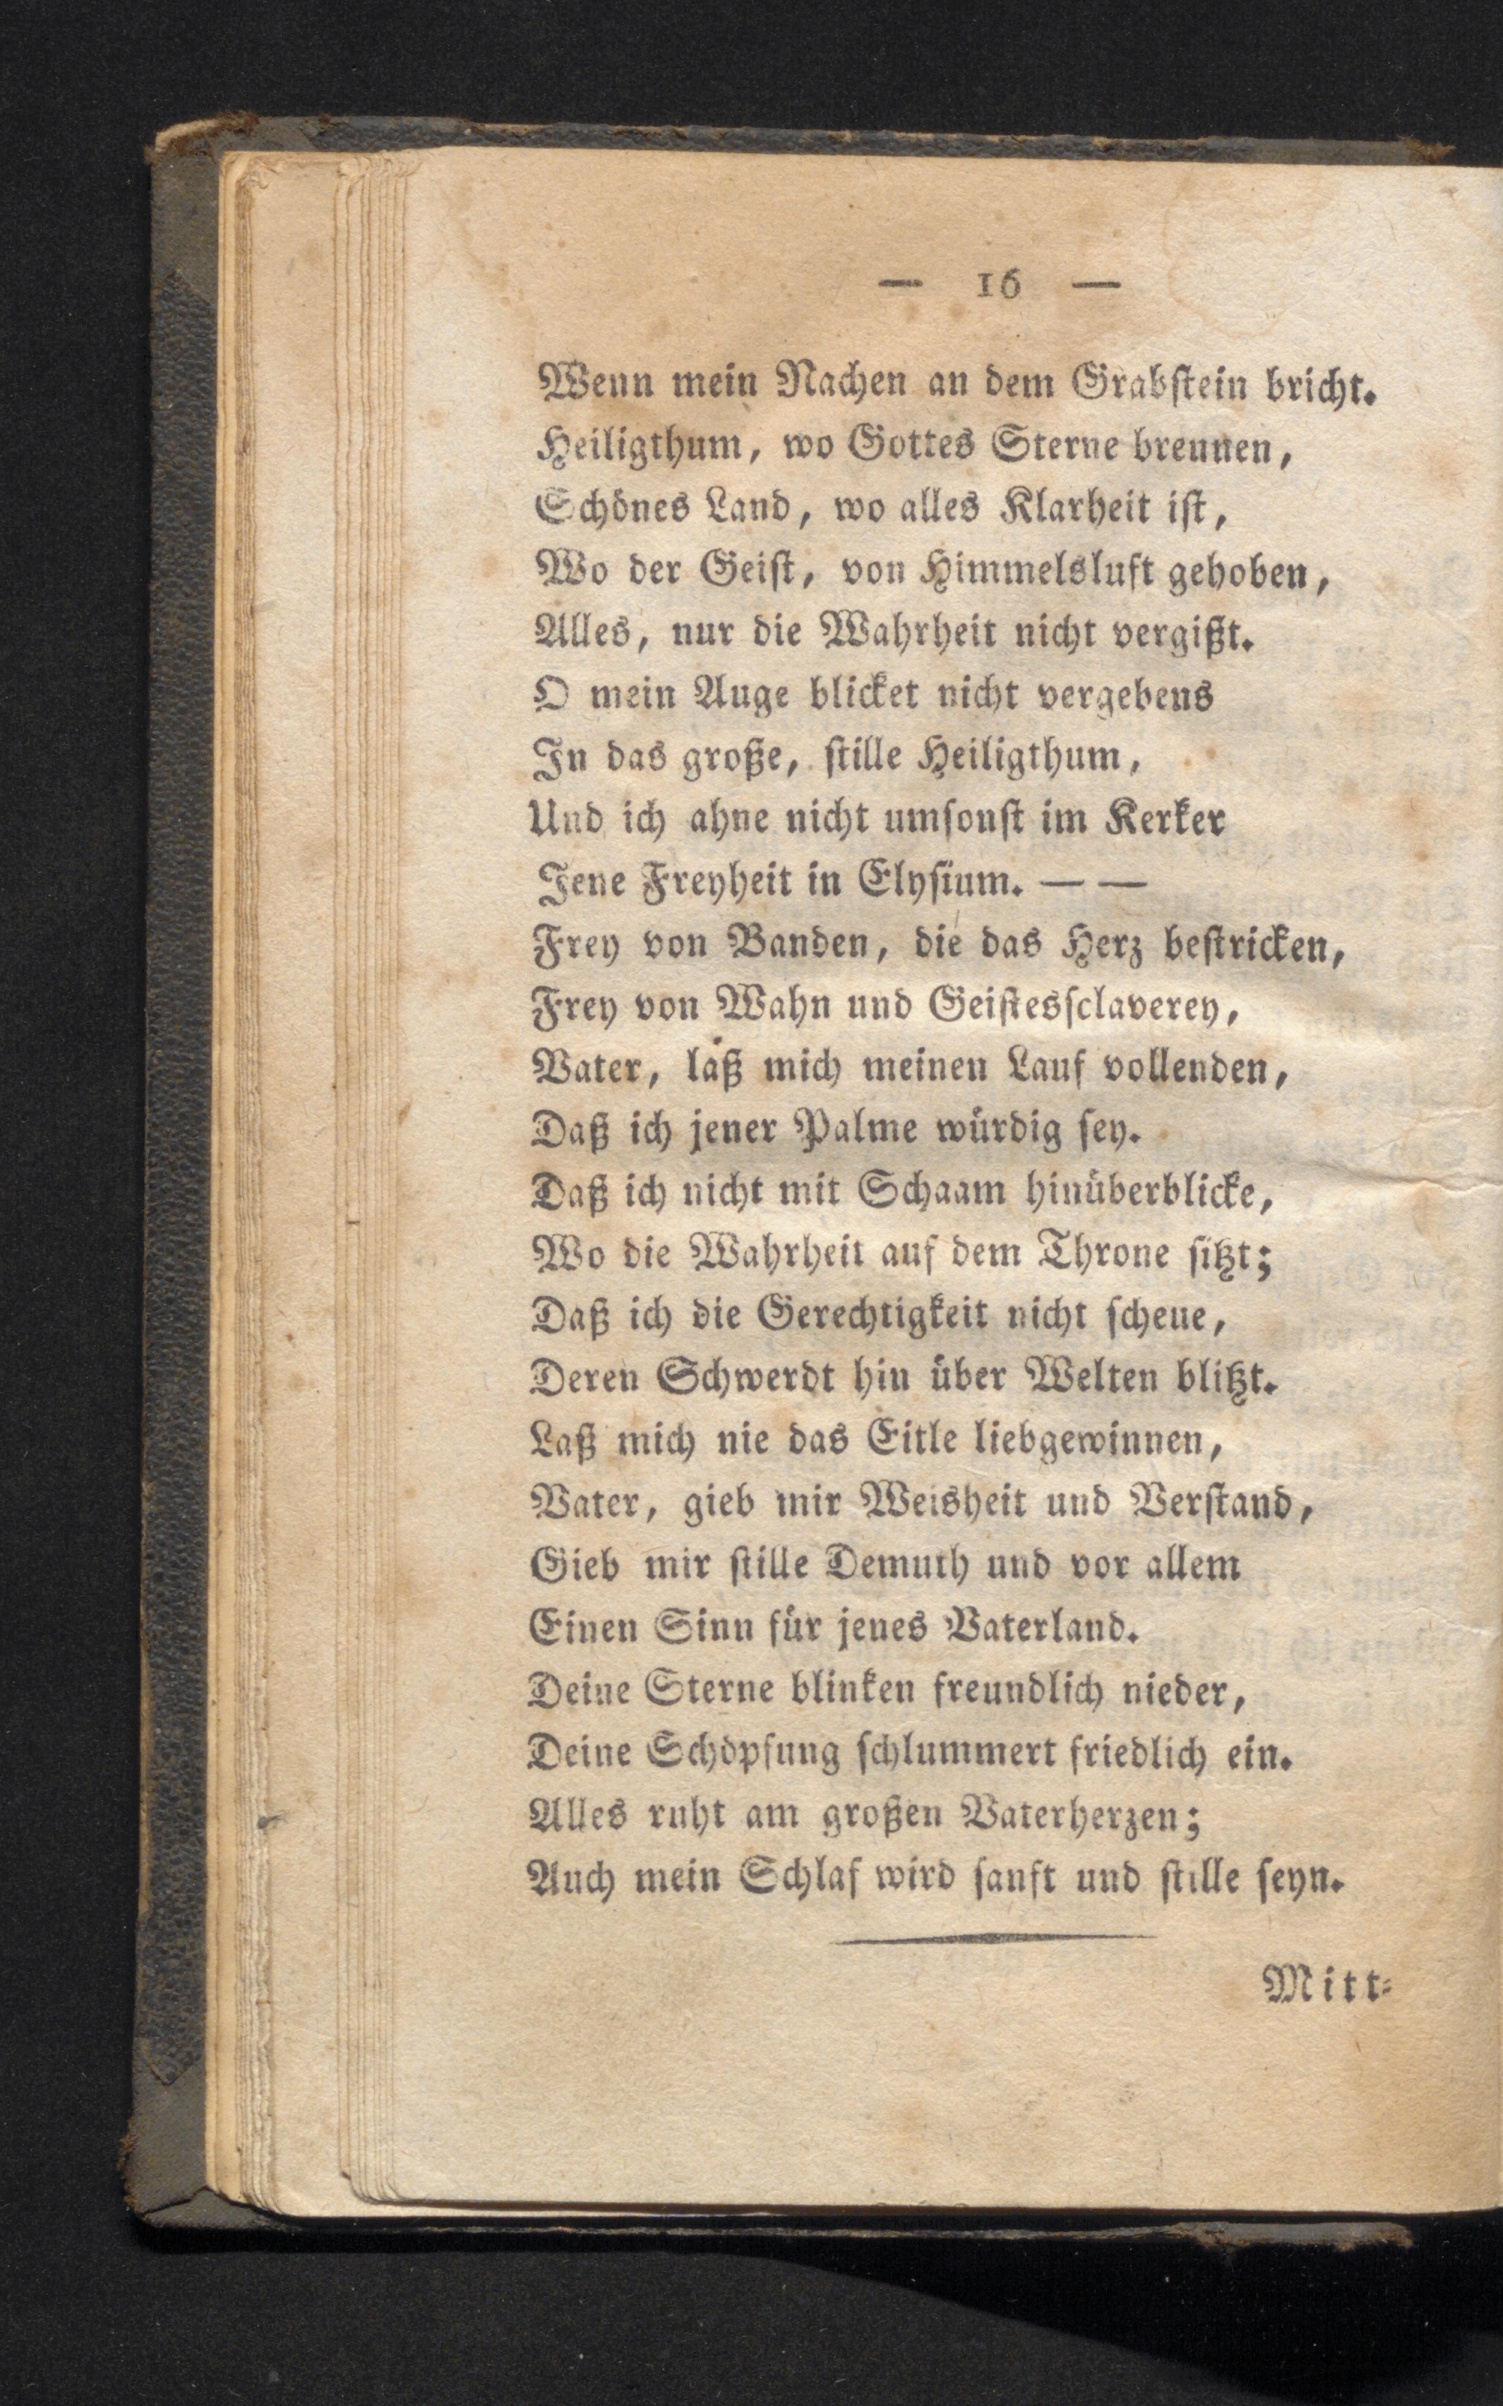 — 16 —
Wenn mein Nachen an dem Grabſtein bricht.
Heiligthum, wo Gottes Sterne brennen,
Schönes Land, wo alles Klarheit iſt,
Wo der Geiſt, von Himmelsluft gehoben,
Alles, nur die Wahrheit nicht vergißt.
O mein Auge blicket nicht vergebens
In das große, ſtille Heiligthum,
Und ich ahne nicht umſonſt im Kerker
Jene Freyheit in Elyſium. — —
Frey von Banden, die das Herz beſtricken,
Frey von Wahn und Geiſtesſclaverey,
Vater, laß mich meinen Lauf vollenden,
Daß ich jener Palme würdig ſey.
Daß ich nicht mit Schaam hinüberblicke,
Wo die Wahrheit auf dem Throne ſitzt;
Daß ich die Gerechtigkeit nicht ſcheue,
Deren Schwerdt hin über Welten blitzt.
Laß mich nie das Eitle liebgewinnen,
Vater, gieb mir Weisheit und Verſtand,
Gieb mir ſtille Demuth und vor allem
Einen Sinn für jenes Vaterland.
Deine Sterne blinken freundlich nieder,
Deine Schöpfung ſchlummert friedlich ein.
Alles ruht am großen Vaterherzen;
Auch mein Schlaf wird ſanft und ſtille ſeyn.
Mitt-